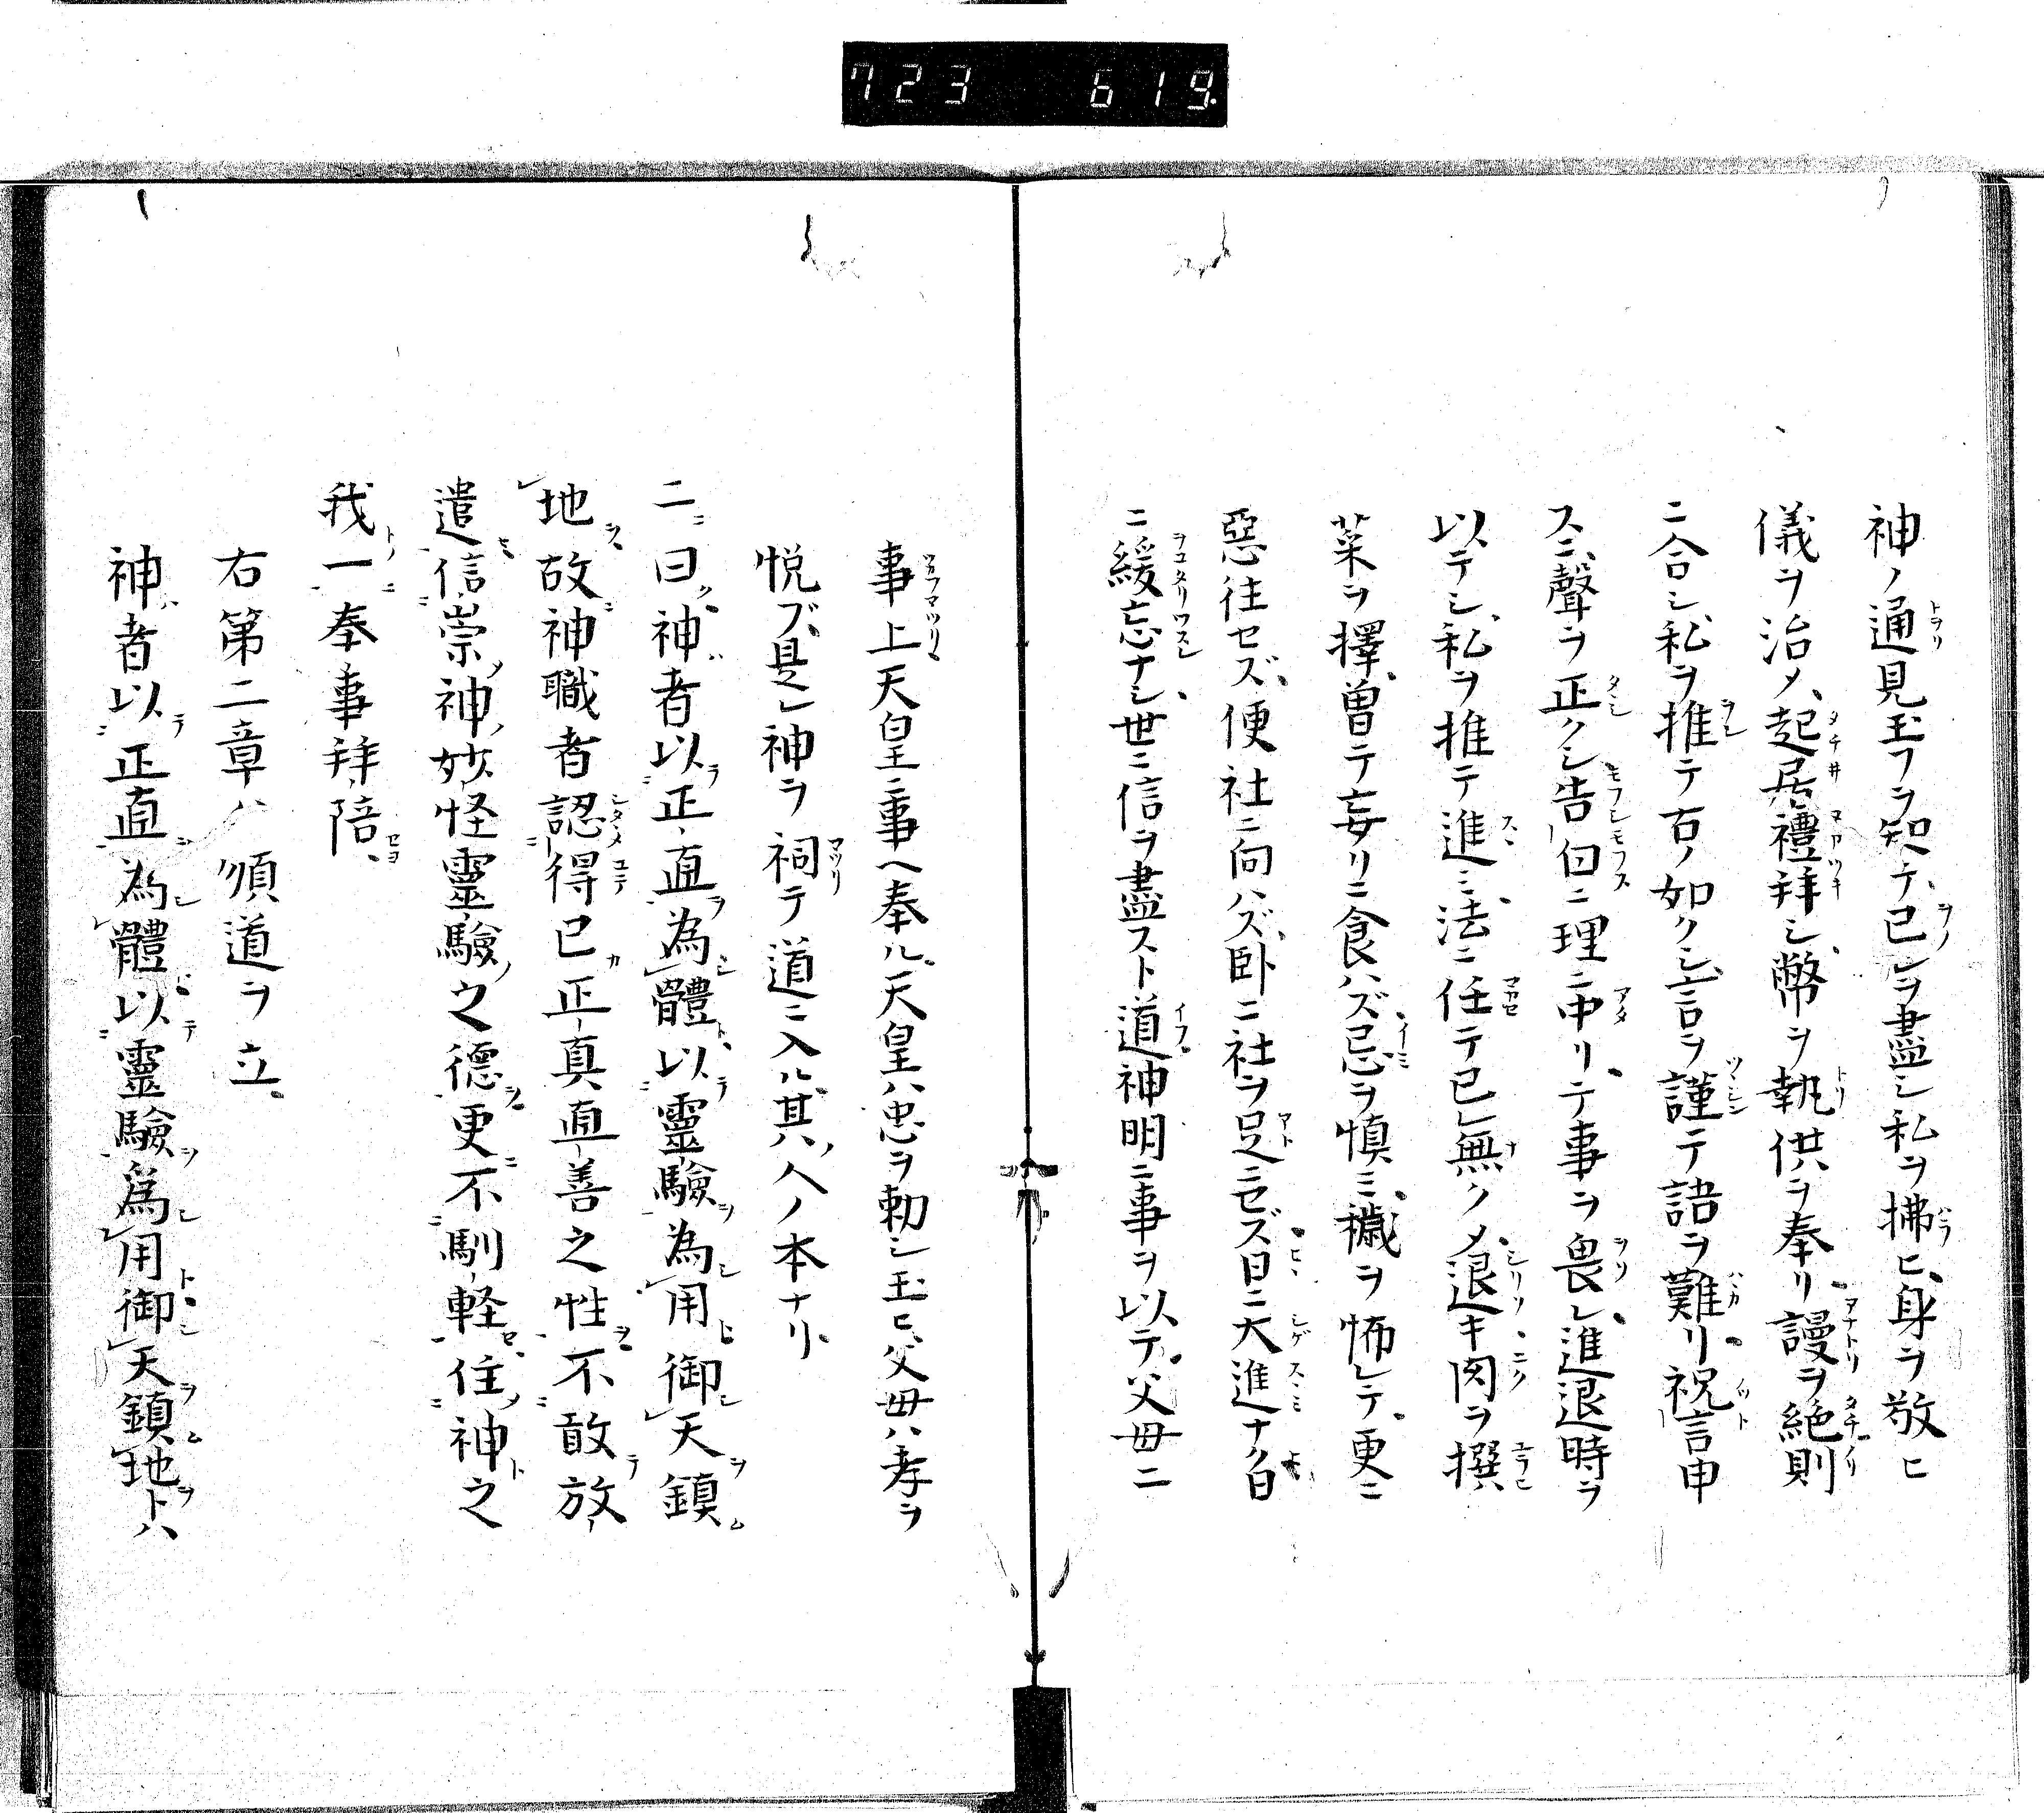 723 619
神ノ通見玉フヲ知テ、己レヲ盡シ私ヲ拂ヒ、身ヲ敬ヒ
儀ヲ治メ、起居禮拜シ、幣ヲ執供ヲ奉リ、謾ヲ絶則
ニ合シ、私ヲ推テ古ノ如クシ、言ヲ謹テ語ヲ難リ、祝言申
スニ、聲ヲ正クシ、告白ニ理ニ中リ、テ事ヲ畏レ、進退時ヲ
以テシ、私ヲ推テ進ミ、法ニ任テ己レ無クメ、退キ肉ヲ撰
菜ヲ擇、曽テ妄リニ食ハズ、忌ヲ慎ミ、穢ヲ怖レテ、更ニ
惡往セズ、便社ニ向ハズ、卧ニ社ヲ足ニセズ、日ニ大進ナク、白
ニ緩忘ナシ、世ニ信ヲ盡スト道、神明ニ事ヲ以テ、父母ニ
事上天皇ニ事ヘ奉ル、天皇ハ忠ヲ勅シ玉ヒ、父母ハ孝ヲ
悦ブ、是レ神ヲ祠テ道ニ入ル、其ノ人ノ本ナリ、
二曰神者以正直為體以靈驗為用御天鎮
地故神職者認得已正真直善之性不敢放
遣信崇神妙怪靈驗之德更不馴軽住神之
我一奉事拜陪、
右第二章ハ順道ヲ立、
神者以正直為體以靈驗為用御天鎮地トハ